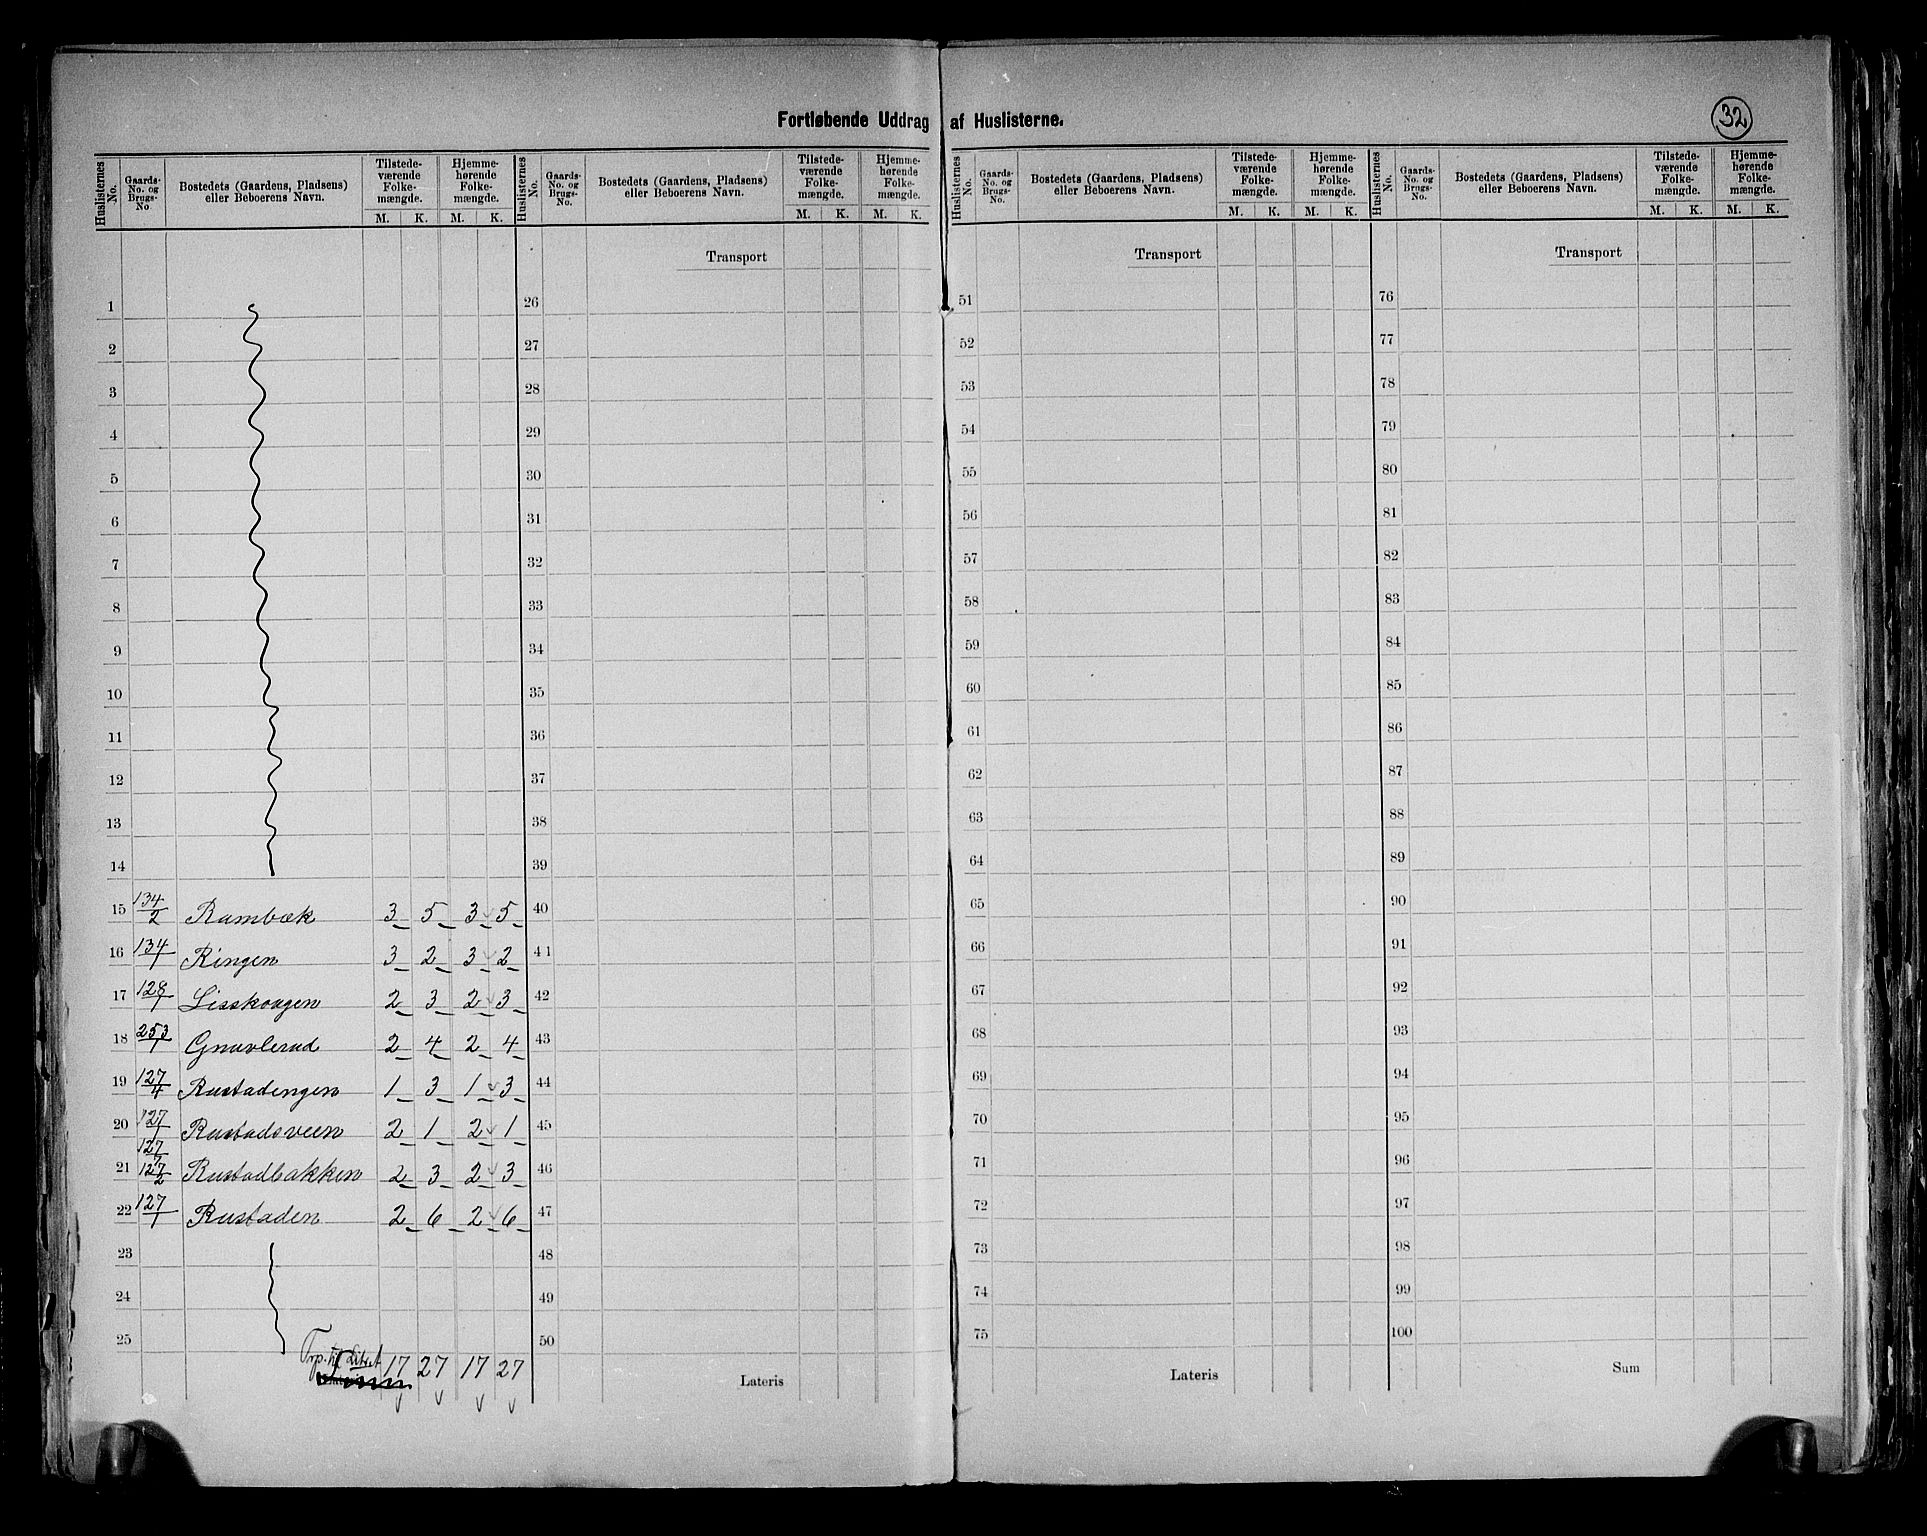 Fortløbende Uddrag af Huslisterne.
32
Huslisternes No. | Gaards-No. og Brugs-No. | Bostedets (Gaardens, Pladsens) eller Beboerens Navn. | Tilstedeværende Folkemængde. M. K. | Hjemmehørende Folkemængde. M. K.
Huslisternes No. | Gaards-No. og Brugs-No. | Bostedets (Gaardens, Pladsens) eller Beboerens Navn. | Tilstedeværende Folkemængde. M. K. | Hjemmehørende Folkemængde. M. K.
Huslisternes No. | Gaards-No. og Brugs-No. | Bostedets (Gaardens, Pladsens) eller Beboerens Navn. | Tilstedeværende Folkemængde. M. K. | Hjemmehørende Folkemængde. M. K.
Huslisternes No. | Gaards-No. og Brugs-No. | Bostedets (Gaardens, Pladsens) eller Beboerens Navn. | Tilstedeværende Folkemængde. M. K. | Hjemmehørende Folkemængde. M. K.
Transport Transport Transport
1 26 51 76
2 27 52 77
3 28 53 78
4 29 54 79
5 30 55 80
6 31 56 81
7 32 57 82
8 33 58 83
9 34 59 84
10 35 60 85
11 36 61 86
12 37 62 87
13 38 63 88
14 39 64 89
15 134/2 Rambæk 3 5 3 5 40 65 90
16 134/1 Ringen 3 2 3 2 41 66 91
17 128/1 Lisskougen 2 3 2 3 42 67 92
18 253/1 Gnavlerud 2 4 2 4 43 68 93
19 127/4 Rustadengen 1 3 1 3 44 69 94
20 127/1 Rustadsveen 2 1 2 1 45 70 95
127
21 127/2 Rustadbakken 2 3 2 3 46 71 96
22 127/1 Rustaden 2 6 2 6 47 72 97
23 48 73 98
24 49 74 99
25 50 75 100
Trp. til 17 27 17 27 Lateris Lateris Sum